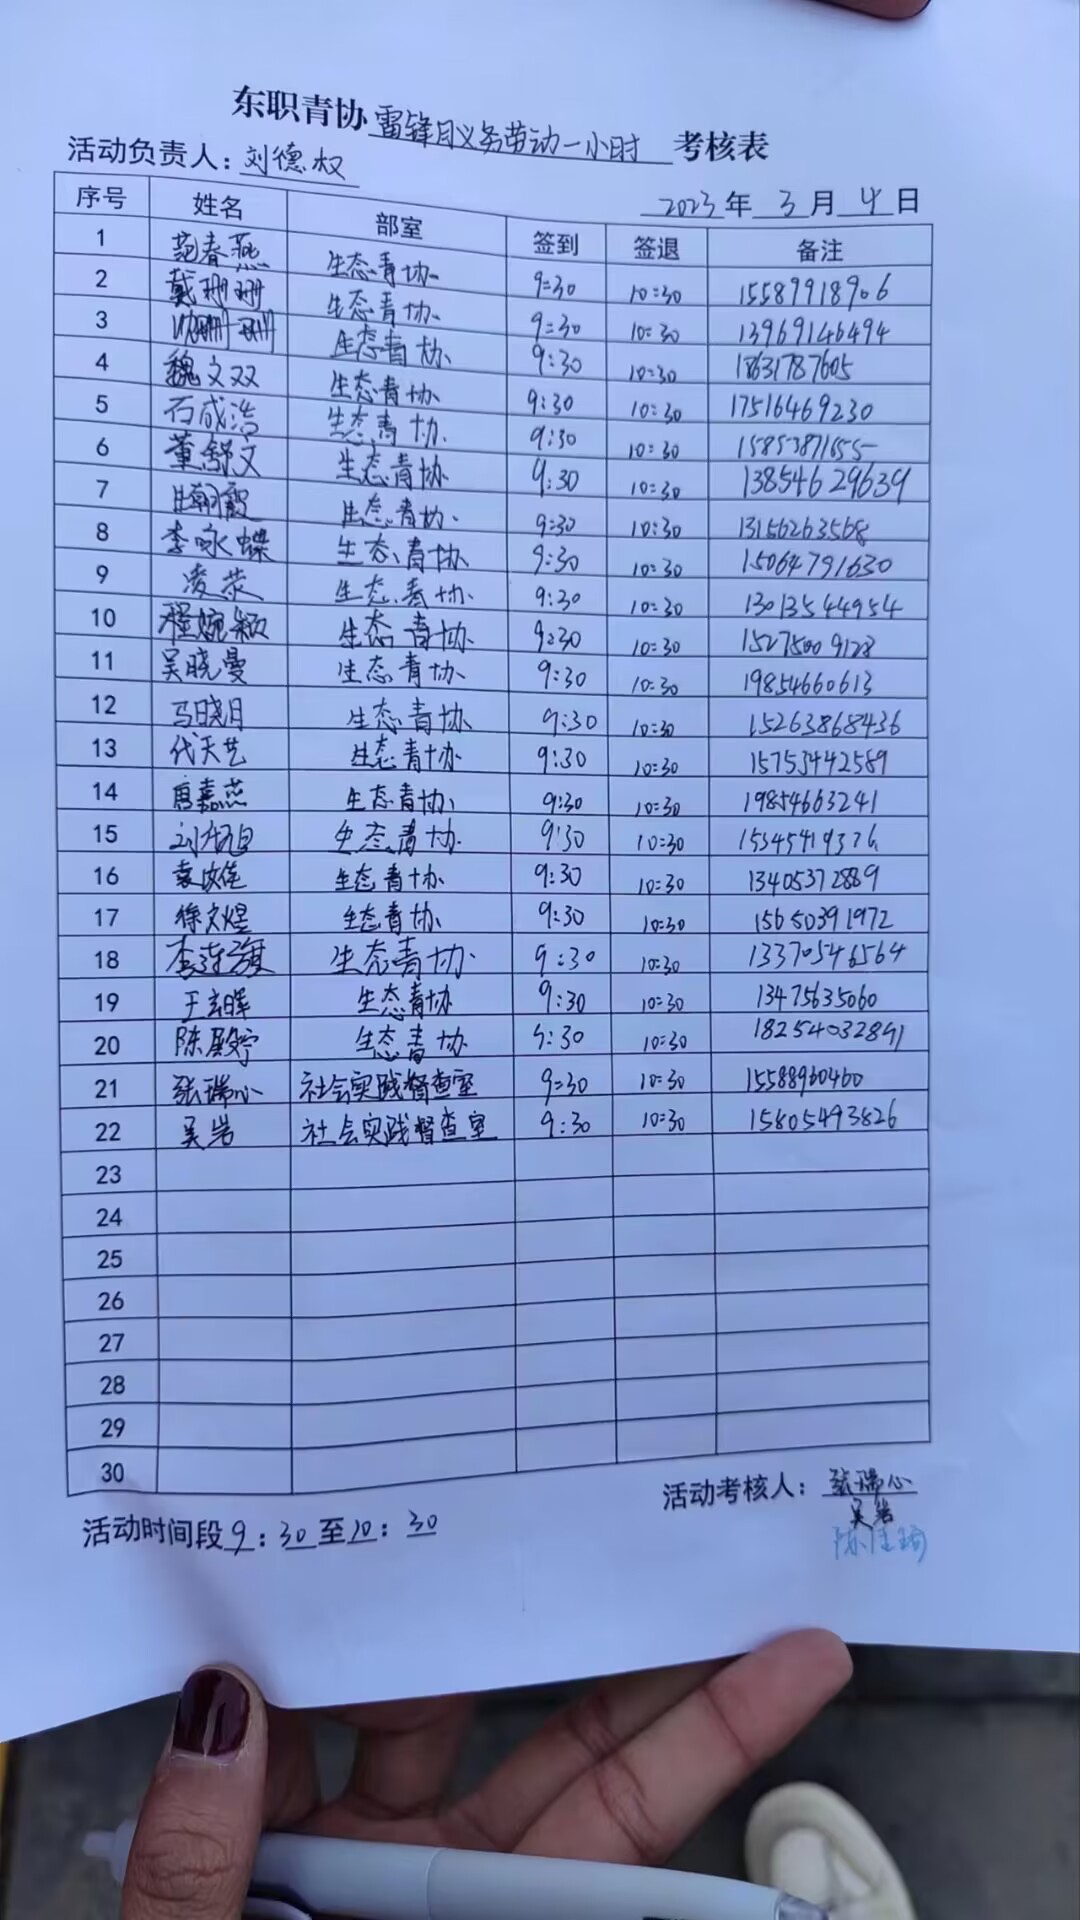 东职青协雷锋月义务劳动一小时考核表
活动负责人：刘德权
2023年3月4日
序号 姓名 部室 签到 签退 备注
1 范春燕 生态青协 9:30 10:30 15589918906
2 戴珊珊 生态青协 9:30 10:30 13969146494
3 生态青协 9:30 10:30 18631787605
4 魏文双 生态青协 9:30 10:30 17516469230
5 石成浩 生态青协 9:30 10:30 15853871655
6 董舒文 生态青协 9:30 10:30 13854629639
7 生态青协 9:30 10:30 13156263568
8 李咏蝶 生态青协 9:30 10:30 15064791630
9 凌荧 生态青协 9:30 10:30 13013544954
10 程婉颖 生态青协 9:30 10:30 15275009128
11 吴晓曼 生态青协 9:30 10:30 19854660613
12 马晓月 生态青协 9:30 10:30 15263868436
13 代天艺 生态青协 9:30 10:30 15753442589
14 唐嘉燕 生态青协 9:30 10:30 19854663241
15 生态青协 9:30 10:30 15345419376
16 生态青协 9:30 10:30 13405372889
17 徐文煜 生态青协 9:30 10:30 15650391972
18 生态青协 9:30 10:30 13370546564
19 生态青协 9:30 10:30 13475635060
20 生态青协 9:30 10:30 18254032891
21 张瑞心 社会实践督查室 9:30 10:30 15588960460
22 吴岩 社会实践督查室 9:30 10:30 15805493826
23
24
25
26
27
28
29
30
活动考核人：张瑞心
吴岩
活动时间段9：30至10：30